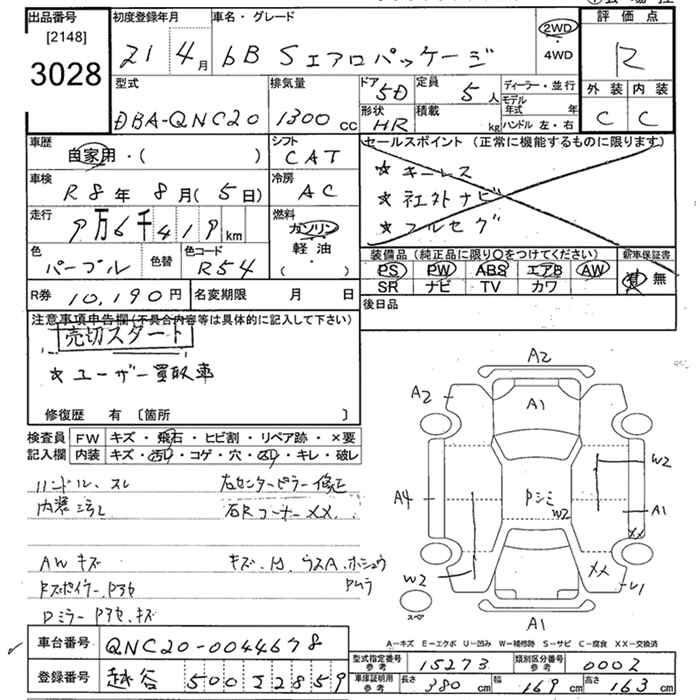 出品番号
[2148]
3028
初度登録年月
21 4月
車名・グレード
bB Sエアロパッケージ
2WD
4WD
評価点
R
外装 内装
C C
型式
DBA-QNC20
排気量
1300 cc
ドア
5D
定員
5人
形状
HR
積載
kg
ディーラー・並行
モデル年式 年
ハンドル 左・右
車歴
自家用・( )
シフト
CAT
セールスポイント (正常に機能するものに限ります)
★キーレス
★社外ナビ
★フルセグ
車検
R8年 8月(5日)
冷房
AC
走行
9万6千419km
燃料
ガソリン
軽油
( ・ )
色
パープル
色替
色コード
R54
装備品(純正品に限り○をつけてください)
PS PW ABS エアB AW
SR ナビ TV カワ
新車保証書
有 無
R券 10,190円
名変期限 月 日
後日品
注意事項申告欄(不具合内容等は具体的に記入して下さい)
売切スタート
☆ユーザー買取車
修復歴 有〔箇所 〕
検査員
記入欄
FW キズ・飛石・ヒビ割・リペア跡・×要
内装 キズ・汚れ・コゲ・穴・凹・キレ・破レ
ハンドル、スレ
右センターピラー修正
内装汚レ
右Rコーナー××.
AWキズ
キズ、凹、ウスA、ホシュウ
Pムラ
Pミラー Pアセ、キズ
A2
A2
A1
W2
A4
Pシミ
W2
A1
××
W2
××
U1
スペア
A1
A-キズ E-エクボ U-凹み W-補修跡 S-サビ C-腐食 XX-交換済
車台番号 QNC20-0044678
登録番号 越谷 500 さ 2859
型式指定番号
参考
15273
類別区分番号
参考
0002
車庫証明用
参考
長さ 380cm
幅 169cm
高さ 163cm